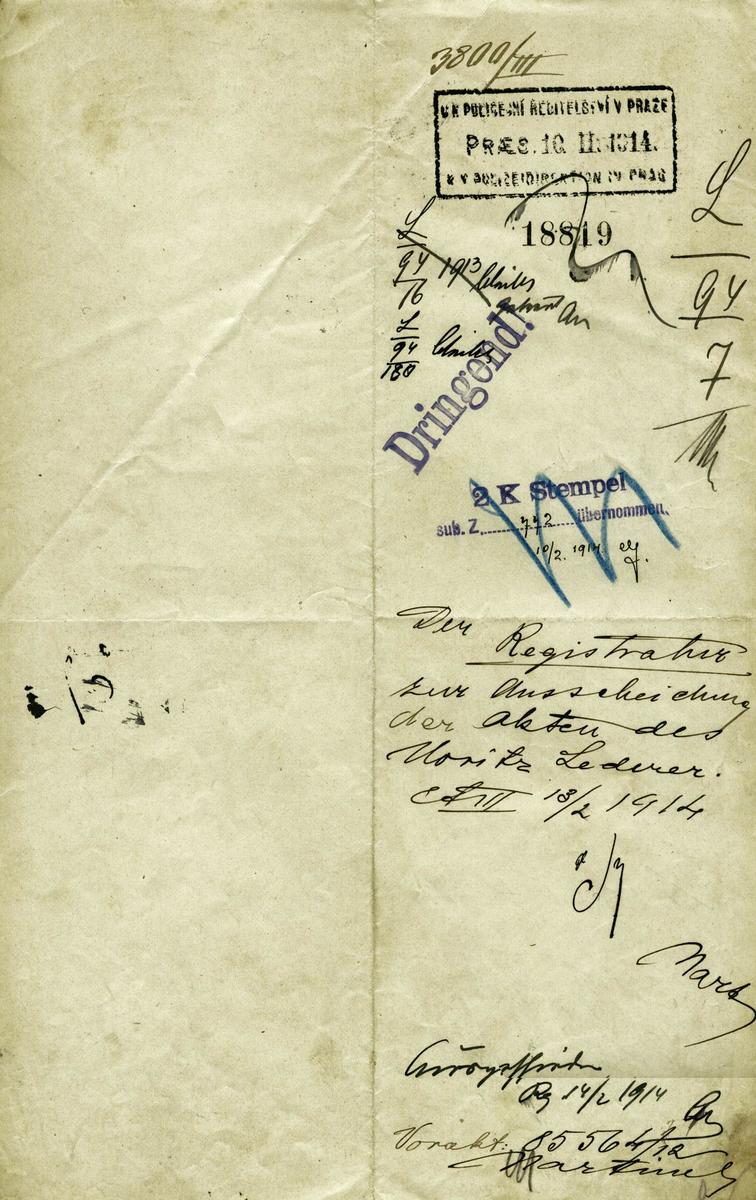 3800/III
K K POLICEJNÍ ŘEDITELSTVÍ V PRAZE
PRÆS. 10. II. 1914.
K K POLIZEIDIREKTION IN PRAG
18819
L
94
7
L
94
16
1913
L
94
180
Dringend!
2 K Stempel
sub. Z. 772 übernommen.
10/2. 1914
Der Registratur
zur Ausscheidung
der Akten des
Moritz Lederer.
13/2 1914
Ausgeschieden
Rg 14/2 1914
Vorakt: 85564/12
Martinec